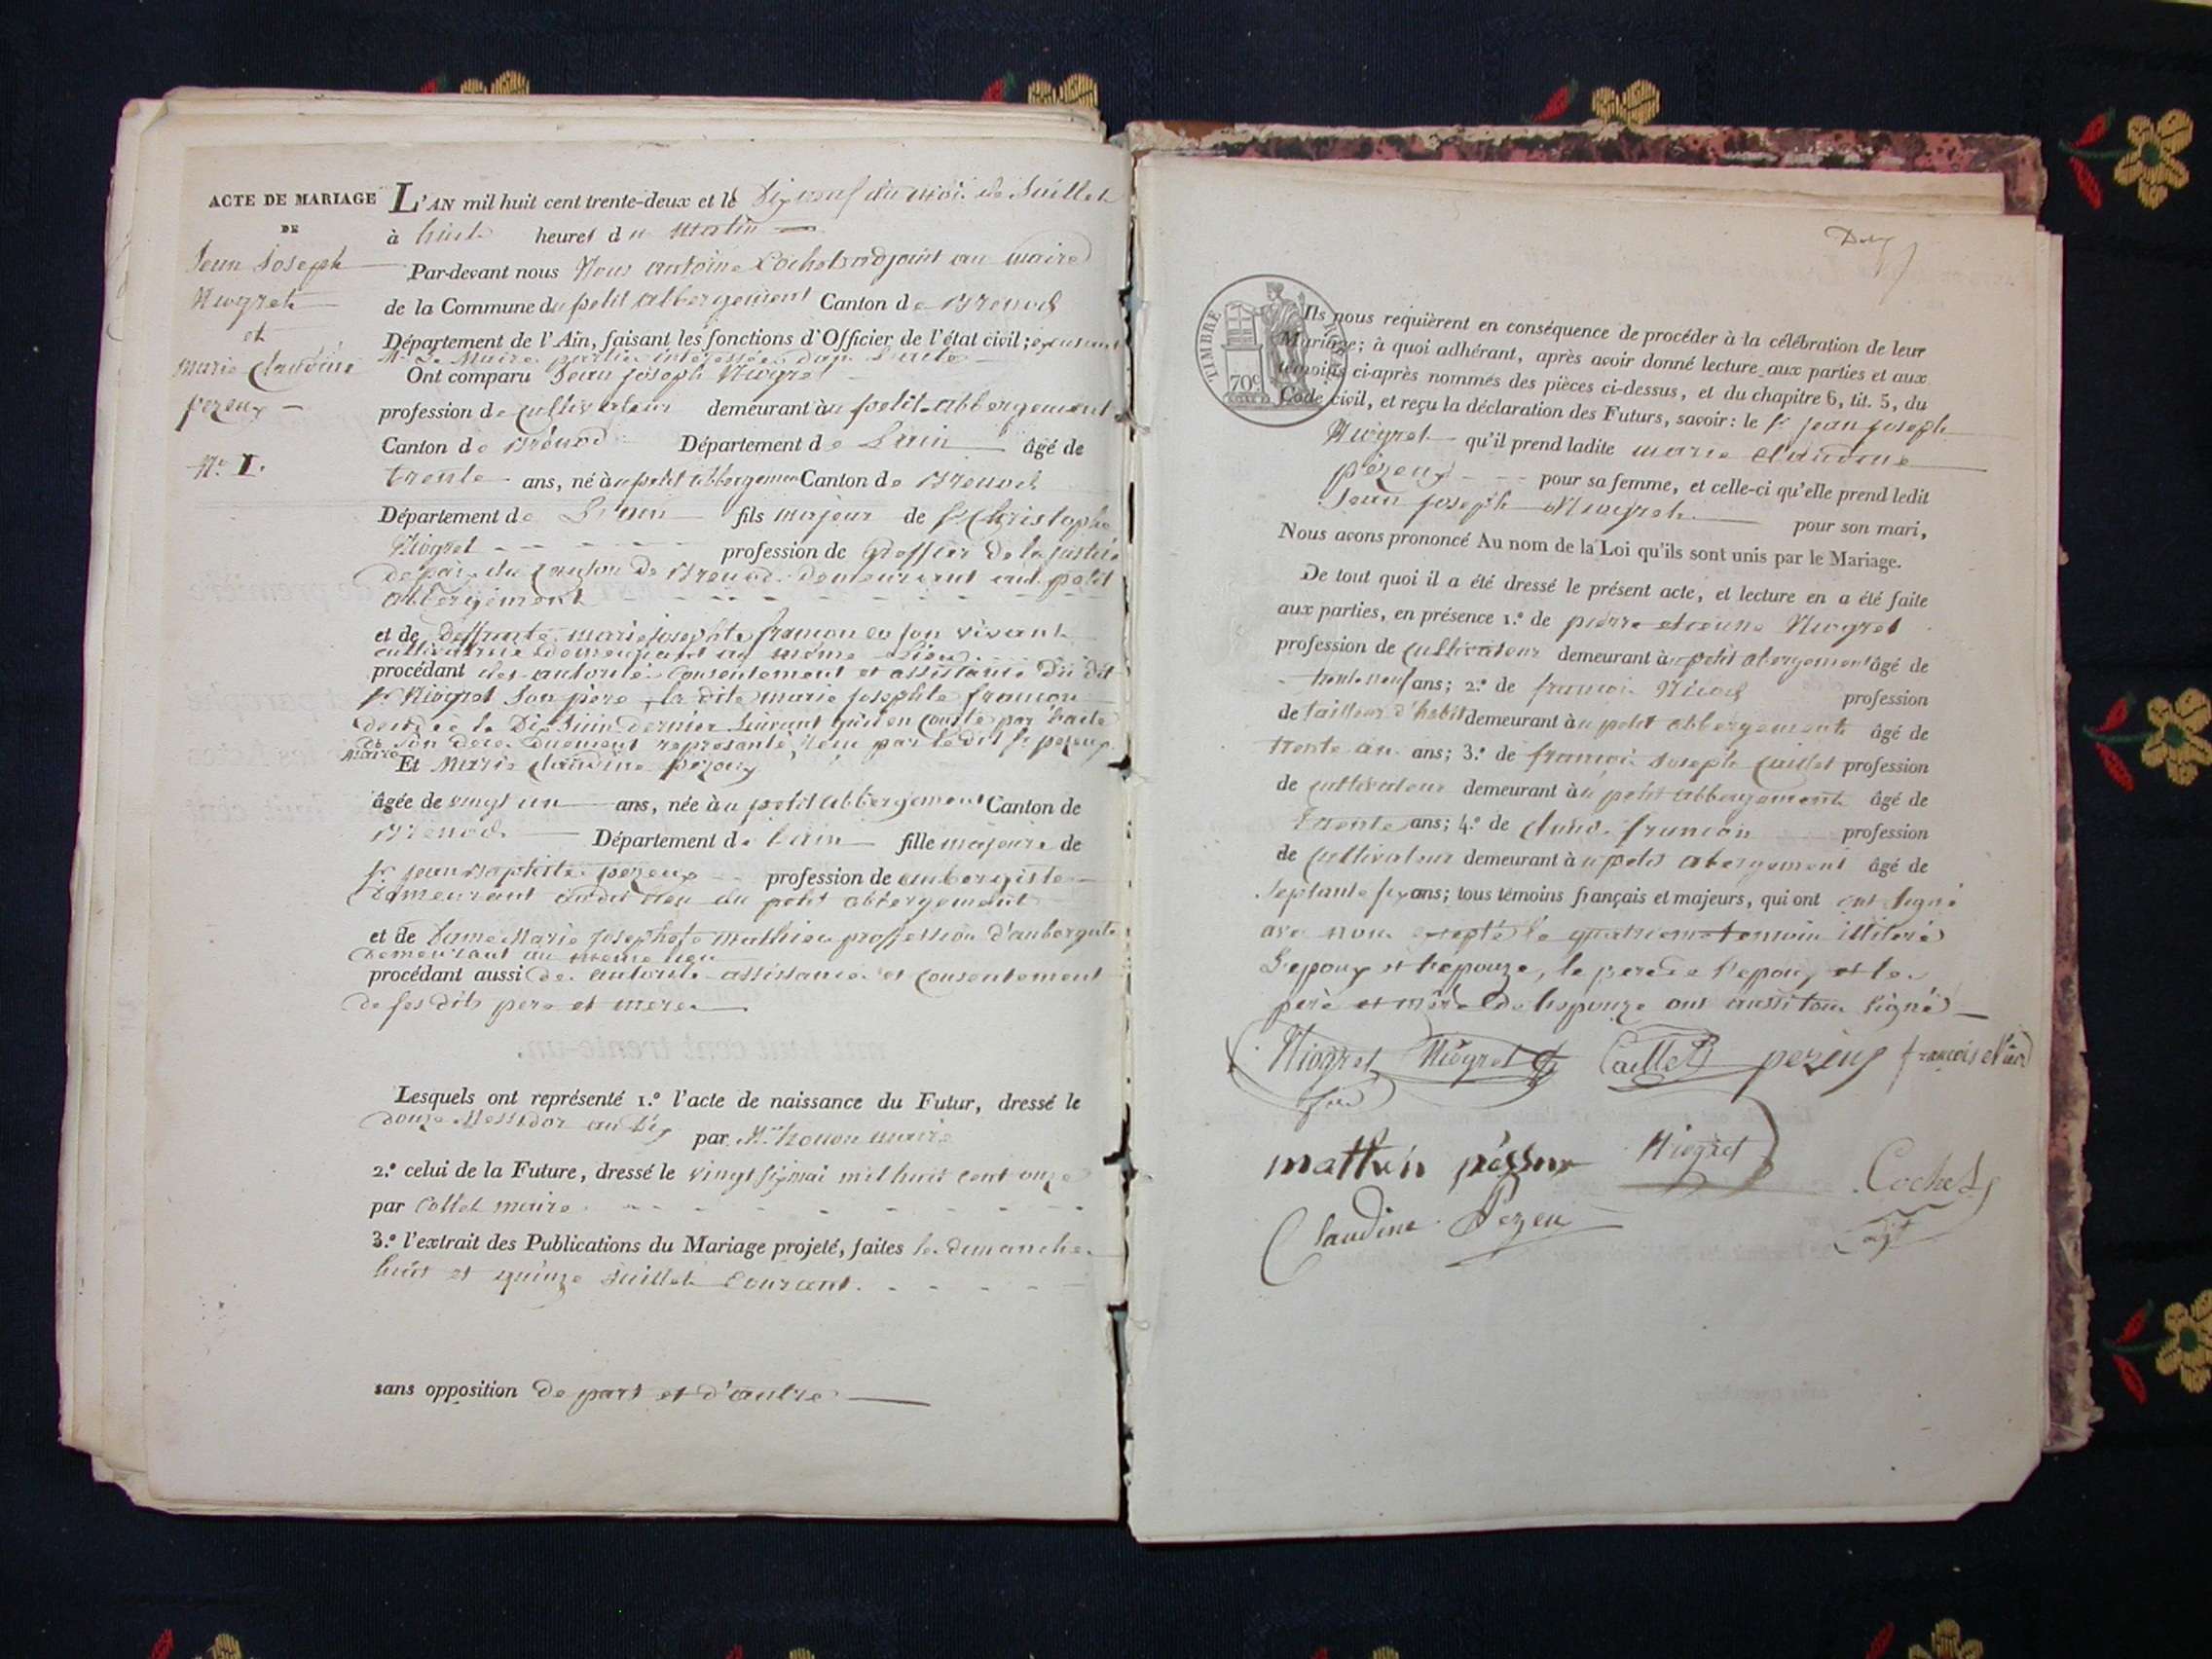 ACTE DE MARIAGE
DE
Jean Joseph
Niogret
et
marie Claudine
pezeux
N.o I.
L'AN mil huit cent trente-deux et le Dix neuf du mois de Juillet
à huit heures du matin
Par-devant nous Nous antoine Cochet adjoint au maire
de la Commune du petit abbergement Canton de Brenod
Département de l'Ain, faisant les fonctions d'Officier de l'état civil;
Mr Le Maire partie intéressée dans l'acte
Ont comparu Jean joseph Niogret
profession de cultivateur demeurant au petit abbergement
Canton de Brénod Département de Lain âgé de
trente ans, né au petit abbergemen Canton de Brenod
Département de Lain fils majeur de Sr Christophe
Niogret profession de Greffier de la justice
de paix du Canton de Brenod demeurant aud. petit
abbergement
et de deffunte marie josephte francon en son vivant
cultivatrice demeurant au même Lieu
procédant des autorité Consentement et assistance du dit
Sr Niogret Son père, la dite marie josephte francon
décédée le Dix Juin dernier Suivant qu'il en Conste par l'acte
de son décès duement représanté, reçu par le dit Sr pezeux
maire
Et Marie Claudine pezeux
âgée de vingt un ans, née au petit abbergement Canton de
Brenod Département de Lain fille majeure de
Sr jean Baptiste pezeux profession de aubergiste
demeurant audit lieu du petit abbergement
et de Dame Marie Josephte mathieu profession d'aubergiste
demeurant au meme lieu
procédant aussi de autorité assistance et Consentement
de ses dits pere et mere
Lesquels ont représenté 1.o l'acte de naissance du Futur, dressé le
douze Messidor an dix par Mr maire
2.o celui de la Future, dressé le vingt six mai mil huit cent onze
par Collet maire
3.o l'extrait des Publications du Mariage projeté, faites les dimanches
huit et quinze Juillet Courant.
sans opposition de part et d'autre
TIMBRE ROYAL
70c
Ils nous requièrent en conséquence de procéder à la célébration de leur
Mariage; à quoi adhérant, après avoir donné lecture aux parties et aux
témoins ci-après nommés des pièces ci-dessus, et du chapitre 6, tit. 5, du
Code civil, et reçu la déclaration des Futurs, savoir: le Sr jean joseph
Niogret qu'il prend ladite marie claudine
pézeux pour sa femme, et celle-ci qu'elle prend ledit
Jean joseph Niogret pour son mari,
Nous avons prononcé Au nom de la Loi qu'ils sont unis par le Mariage.
De tout quoi il a été dressé le présent acte, et lecture en a été faite
aux parties, en présence 1.o de pierre etienne Niogret
profession de cultivateur demeurant au petit abergement âgé de
trente neuf ans; 2.o de francois Nicod profession
de tailleur d'habit demeurant au petit abbergement âgé de
trente ans; 3.o de francois Joseph Caillet profession
de cultivateur demeurant au petit abbergement âgé de
trente ans; 4.o de claude francon profession
de Cultivateur demeurant au petit abergement âgé de
Septante six ans; tous témoins français et majeurs, qui ont ont signé
avec nous excepté le quatrieme temoin illiteré
L'epoux et l'epouze, le pere de l'epoux et les
père et mère de lepouze ont aussi tous Signé
Niogret Niogret Caillet pezeux francois Nicod
mattieu Niogret
Claudine Pezeu Cochet
adjt